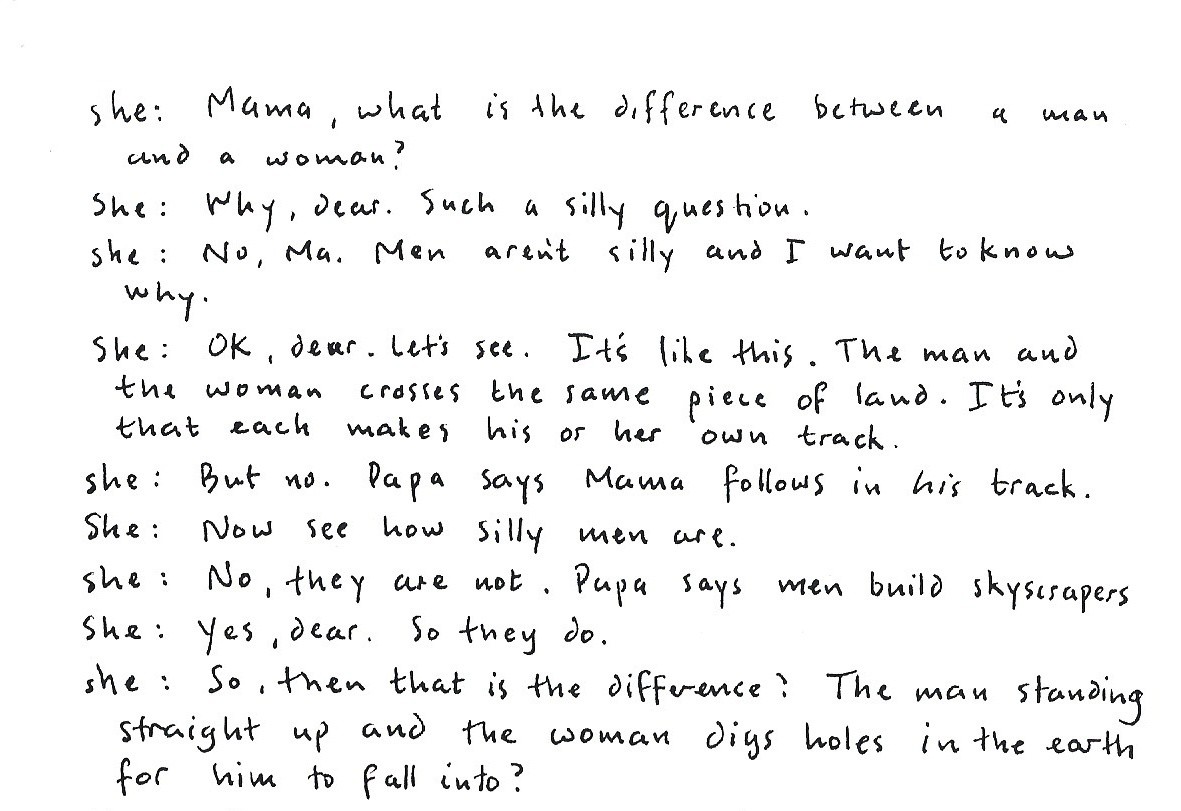 she: Mama, what is the difference between a man
and a woman?
She: Why, dear. Such a silly question.
she: No, Ma. Men aren't silly and I want to know
why.
She: OK, dear. Let's see. It's like this. The man and
the woman crosses the same piece of land. It's only
that each makes his or her own track.
she: But no. Papa says Mama follows in his track.
She: Now see how silly men are.
she: No, they are not. Papa says men build skyscrapers
She: Yes, dear. So they do.
she: So, then that is the difference? The man standing
straight up and the woman digs holes in the earth
for him to fall into?